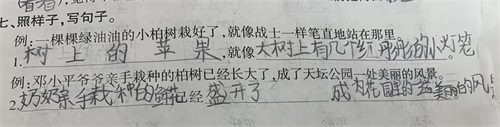 七、照样子,写句子。
例:一棵棵绿油油的小柏树栽好了,就像战士一样笔直地站在那里。
1.树上的苹果,就像大树上有几个红彤彤的小灯笼
例:邓小平爷爷亲手栽种的柏树已经长大了,成了天坛公园一处美丽的风景。
2.奶奶亲手栽种的鲜花已经盛开了 成为花园里的美丽的风